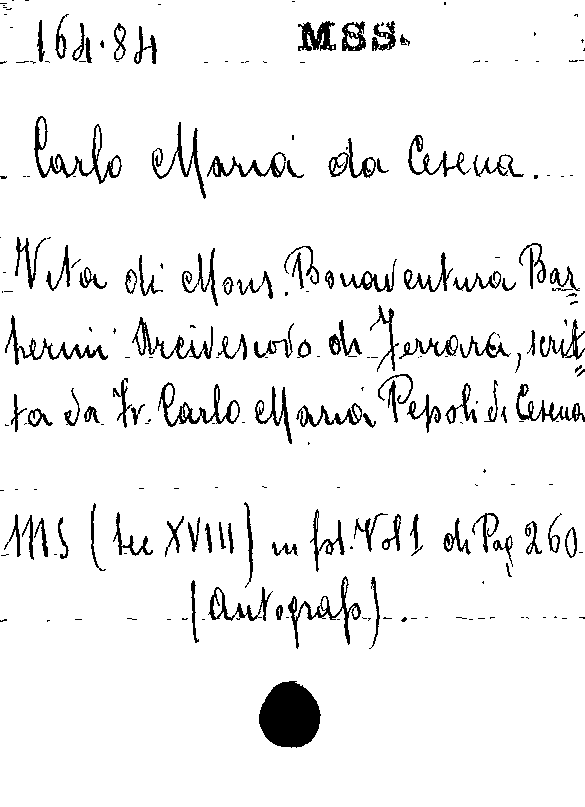 164.84 MSS.
Carlo Maria da Cesena.
Vita di Mons. Bonaventura Bar=
perini Arcivescovo di Ferrara, scrit=
ta da Fr. Carlo Maria Pepoli di Cesena
MS (sec XVIII) in fol. Vol 1 di Pag 260
(autografo).